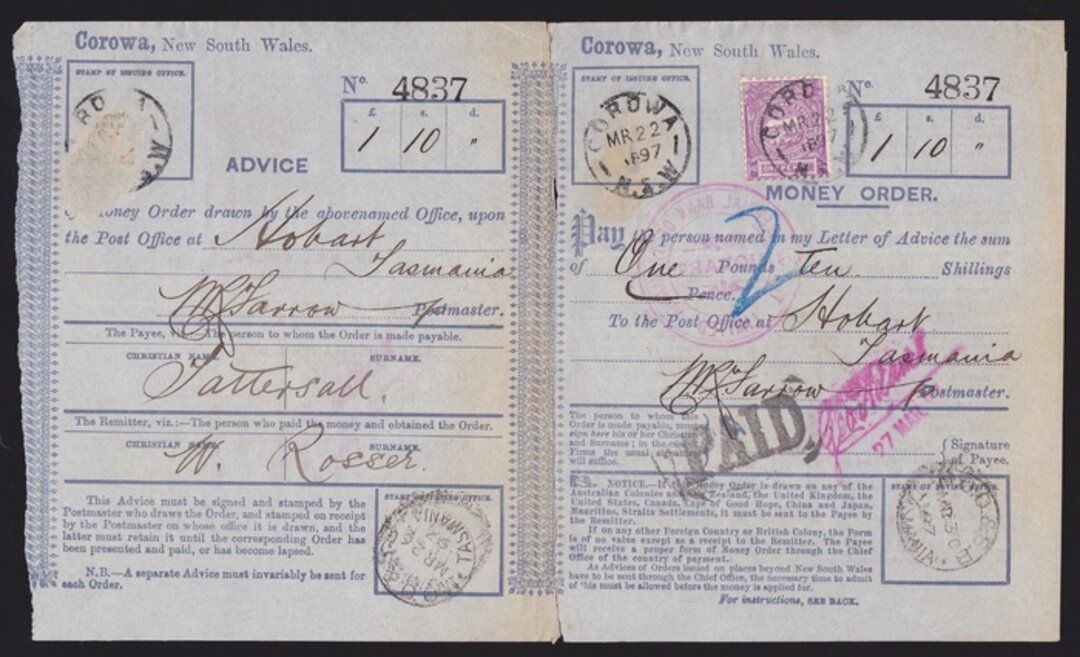 Corowa, New South Wales.
STAMP OF ISSUING OFFICE.
No. 4837
£ s. d.
1 10 "
ADVICE
Money Order drawn by the abovenamed Office, upon
the Post Office at Hobart
Tasmania
Postmaster.
The Payee, viz.: The person to whom the Order is made payable.
CHRISTIAN NAME. SURNAME.
Tattersall.
The Remitter, viz.:—The person who paid the money and obtained the Order.
CHRISTIAN NAME. SURNAME.
W. Rosser.
This Advice must be signed and stamped by the
Postmaster who draws the Order, and stamped on receipt
by the Postmaster on whose office it is drawn, and the
latter must retain it until the corresponding Order has
been presented and paid, or has become lapsed.
N.B.—A separate Advice must invariably be sent for
each Order.
TASMANIA
Corowa, New South Wales.
STAMP OF ISSUING OFFICE.
COROWA
MR 22
1897
N.S.W
COROWA
MR 22
1897
No. 4837
£ s. d.
1 10 "
MONEY ORDER.
Pay the person named in my Letter of Advice the sum
of One Pounds ten Shillings
Pence.
2
To the Post Office at Hobart
Tasmania
Postmaster.
PAID,
27 MAR
The person to whom this
Order is made payable, must
sign here his or her Christian
and Surname; in the case of
Firms the usual signature
will suffice.
Signature
of Payee.
NOTICE.—If this Money Order is drawn on any of the
Australian Colonies, New Zealand, the United Kingdom, the
United States, Canada, Cape of Good Hope, China and Japan,
Mauritius, Straits Settlements, it must be sent to the Payee by
the Remitter.
If on any other Foreign Country or British Colony, the Form
is of no value except as a receipt to the Remitter. The Payee
will receive a proper form of Money Order through the Chief
Office of the country of payment.
As Advices of Orders issued on places beyond New South Wales
have to be sent through the Chief Office, the necessary time to admit
of this must be allowed before the money is applied for.
For instructions, SEE BACK.